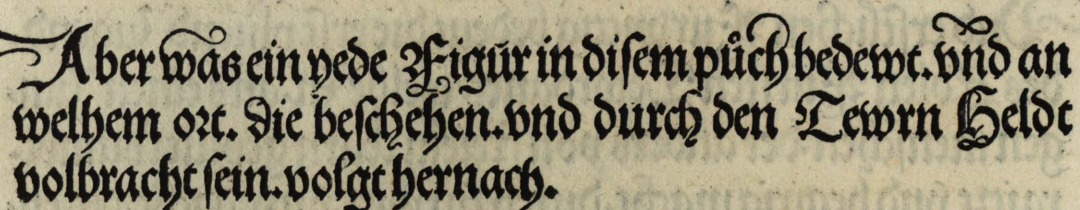 Aber was ein yede Figur in disem půch bedewt. vnd an
welhem ort. die beschehen. vnd durch den Tewrn Heldt
volbracht sein. volgt hernach.